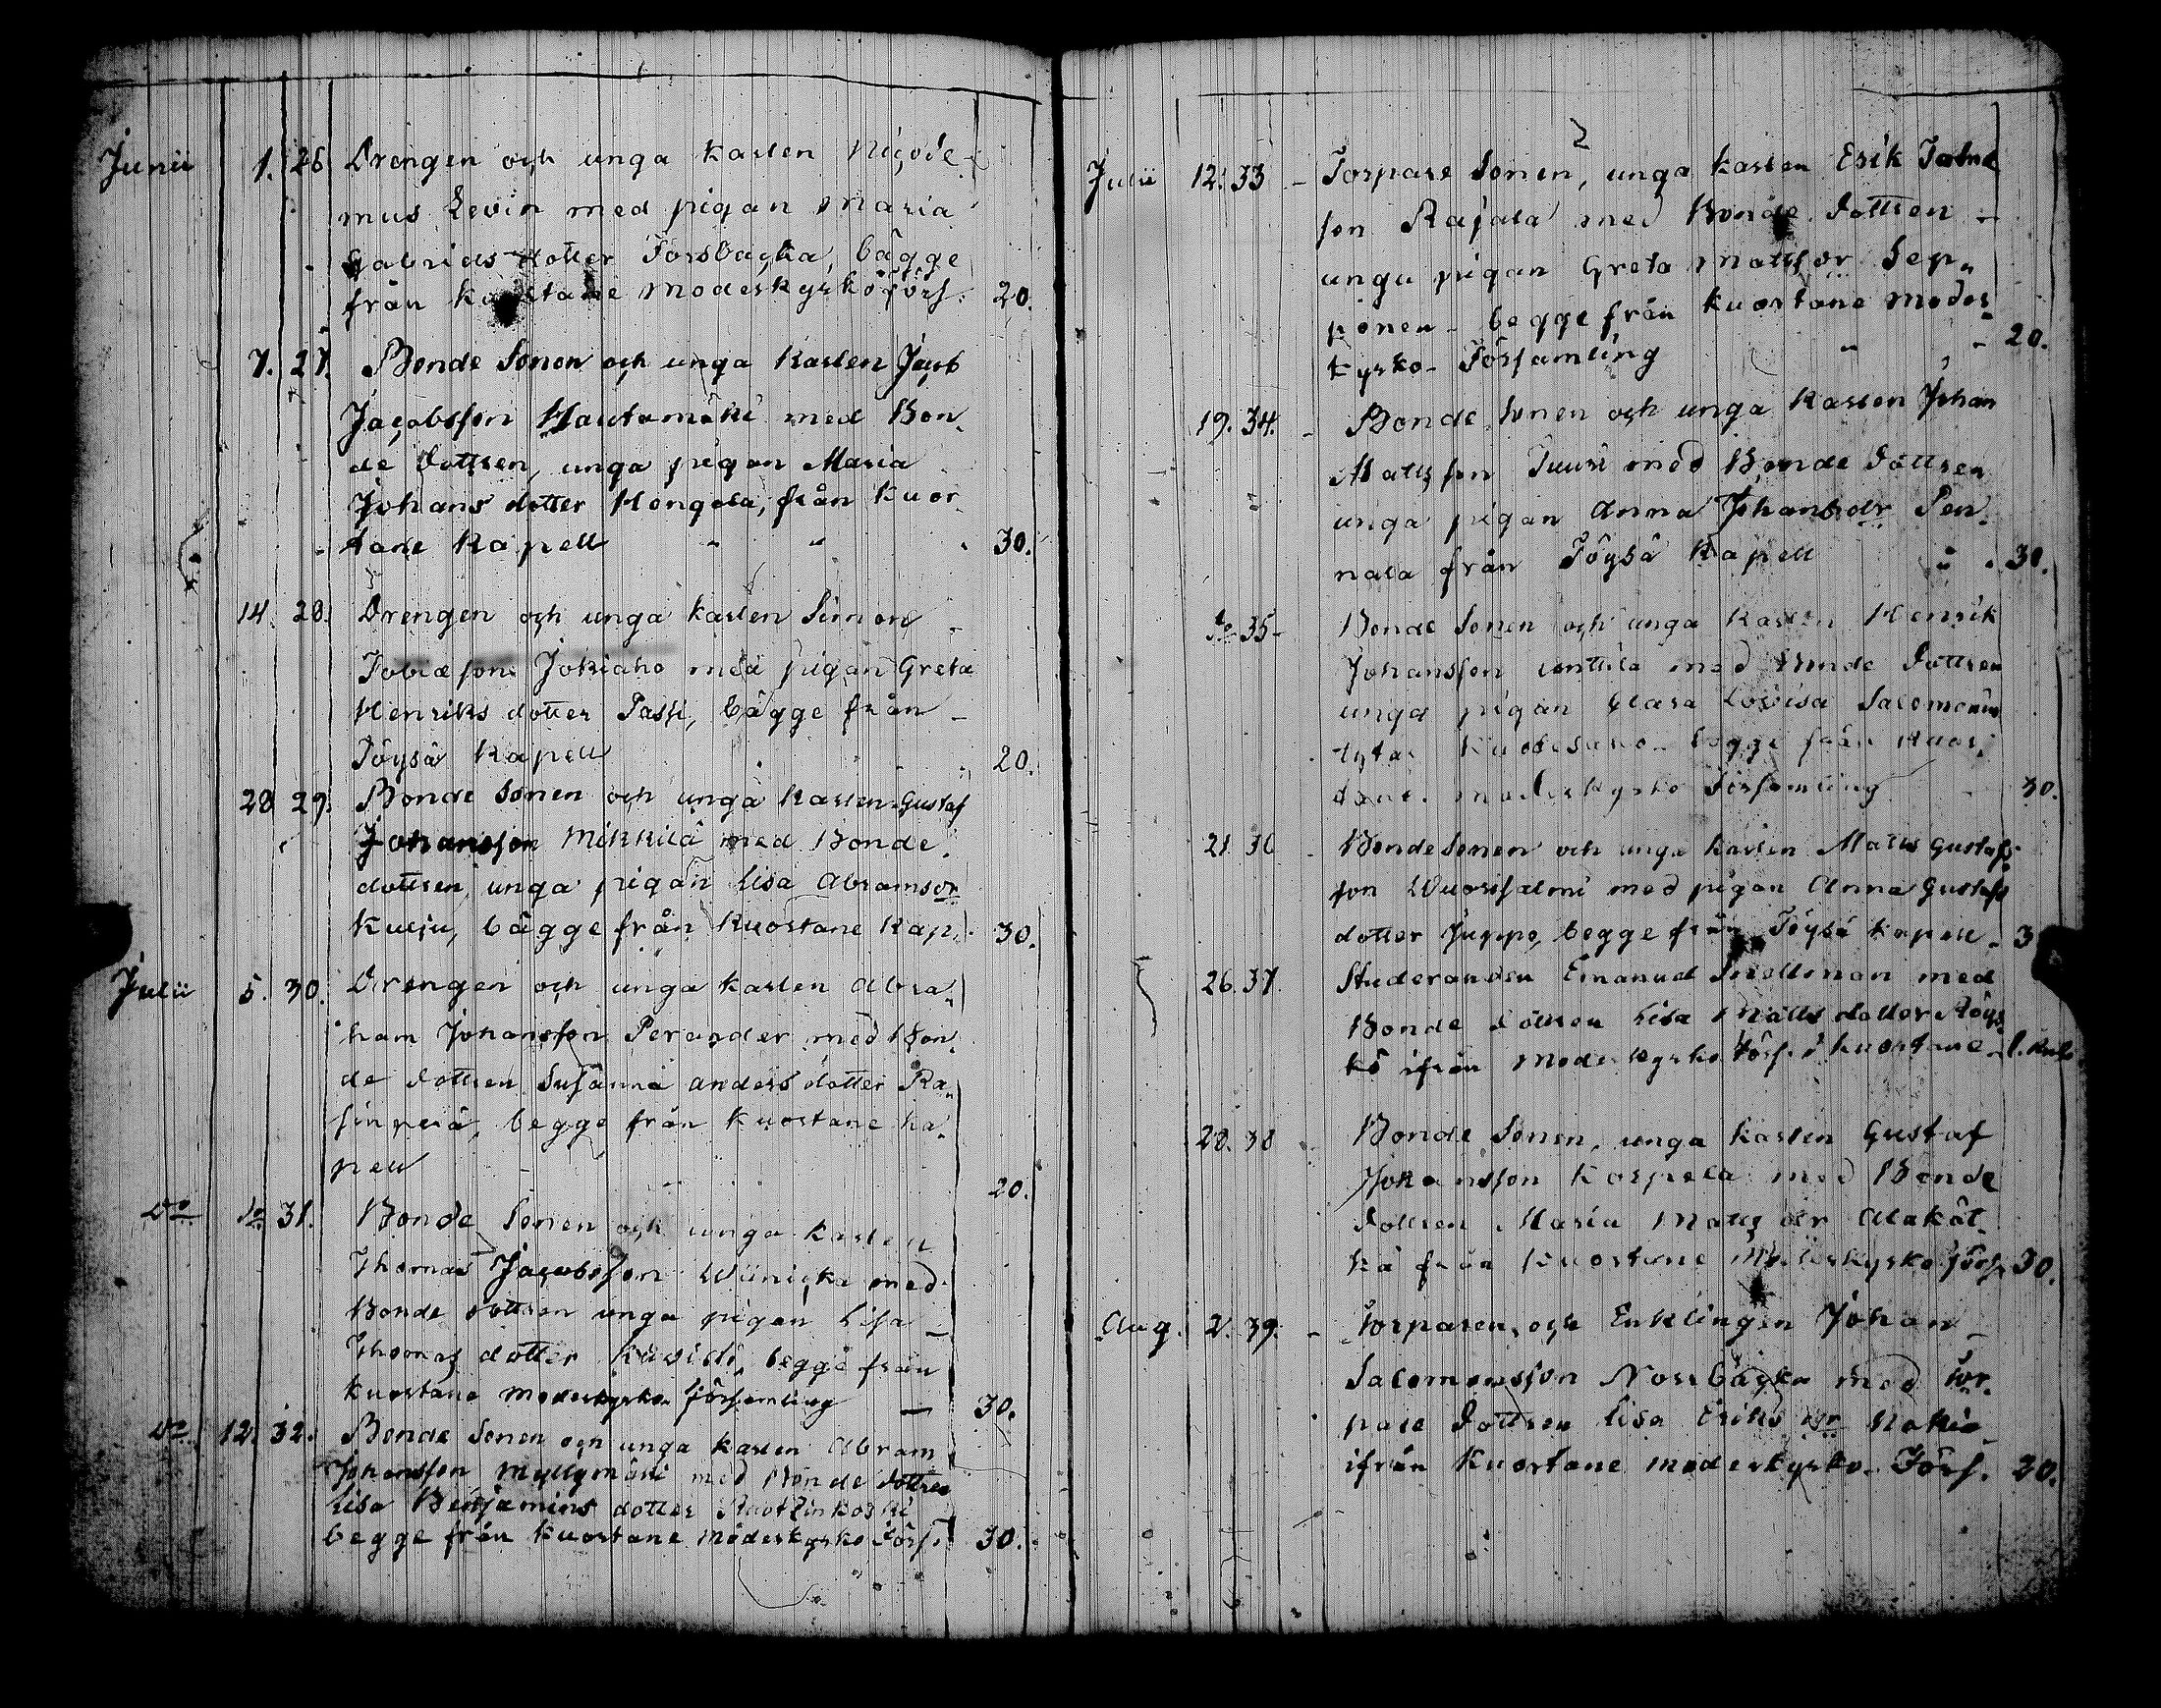 Junii 1. 26 Drengen och unga Karlen Nicode-
mus Levin med pigan Maria
Gabriels dotter Forsbacka, bägge
från Kuortane Moderkyrko förs. 20.
7. 27. Bonde Sonen och unga Karlen Jacob
Jacobsson Hautamäki med Bon-
de Dottren, unga pigan Maria
Johans dotter Kongola, från Kuor-
tane Kapell 30.
14. 28. Drengen och unga Karlen Simon
Tobiæson Jokiaho med pigan Greta
Henriks dotter Passi, bägge från
Töysä Kapell 20.
28 29. Bonde Sonen och unga Karlen Gustaf
Johansson Mikkilä med Bonde
dottren, unga pigan Lisa Abramsdr
bägge från Kuortane Kap. 30.
Julii 5. 30. Drengen och unga Karlen Abra-
ham Johansson Perander med Bon-
de dottren Susanna Anders dotter Ra-
sinperä, begge från Kuortane Ka-
pell 20.
Do do 31. Bonde Sonen och unga Karlen
Thomas Jacobsson med
Bonde dottren unga pigan Lisa
Thomas dotter begge från
Kuortane Moderkyrko församling 30.
Do 12. 32. Bonde Sonen och unga Karlen Abram
Johansson Myllymäki med Bonde dottren
Lisa Benjamins dotter
begge från Kuortane Moderkyrko Förs. 30.
Julii 12. 33 Torpare Sonen, unga Karlen Erik
son Rajala med Bonde Dottren
unga pigan Greta Matts dr Sep-
ponen begge från Kuortane Moder-
kyrko Församling 20.
19. 34. Bonde Sonen och unga Karlen Johan
Mattsson Tuuri med Bonde Dottren
unga pigan Anna Johansdr Pen-
nala från Töysä Kapell 30.
do 35 Bonde Sonen och unga Karlen Henrik
Johansson med Bonde Dottren
unga pigan Clara Lovisa Salomons
begge från Kuor-
tane moderkyrko Församling 30.
21 36 Bonde Sonen och unga Karlen Matts Gustafs-
son Wuorisalmi med pigan Anna Gustafs
dotter Juppo, begge från Töysä Kapell 3
26. 37. Studeranden Emanuel Snellman med
Bonde dottren Lisa Matts dotter Röys-
kö ifrån Moderkyrko Förs. i Kuortane
28. 38 Bonde Sonen, unga Karlen Gustaf
Johansson Korpela med Bonde
Dottren Maria Matts dr Alakät-
kä från Kuortane Moderkyrko förs. 30.
Aug. 2. 39. Torparen och Enklingen Johan
Salomonsson Norrbacka med Tor-
pare Dottren Lisa Eriks dr
ifrån Kuortane moderkyrko Förs. 20.